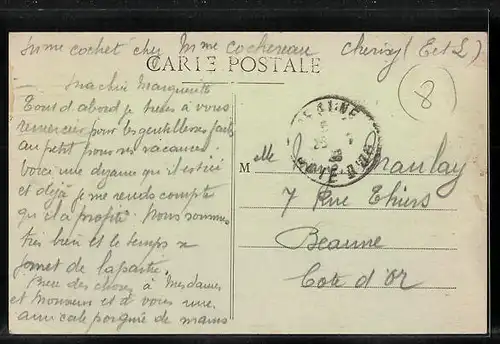 Mme Cochet chez Mme Cochereau Cherizy (E et L)
CARTE POSTALE
8
Ma chère Marguerite
Tout d'abord je tiens à vous
remercier pour les gentillesses faites
au petit pour ses vacances.
Voici une dizaine qu'il est ici
et déjà je me rends compte
qu'il a profité. Nous sommes
très bien et le temps se
met de la partie.
Bien des choses à Mesdames
et Monsieur et à vous une
amicale poignée de mains
BEAUNE
COTE D'OR
M
elle
7 Rue Thiers
Beaune
Cote d'Or